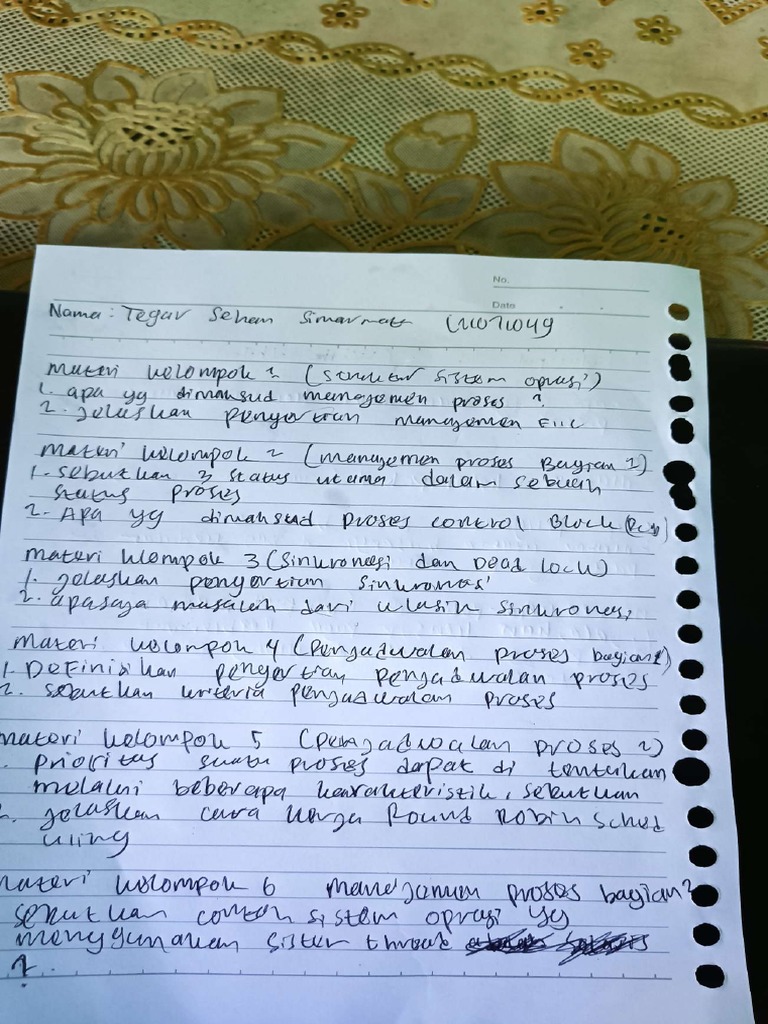 No.
Date
Nama: Tegar Sehem Simarmatt
Materi kelompok 1 (Struktur sistem oprasi)
1. apa yg dimaksud menagemen proses ?
2. jelaskan pengertian manajemen File
Materi kelompok 2 (manajemen proses Bagian 1)
1. sebutkan 3 status utama dalam sebuah
status proses
2. Apa yg dimaksud proses control Block (PCB)
Materi klompok 3 (sinkronasi dan Dead lock)
1. jelaskan pengertian sinkronasi
2. apasaja masalah dari klasik sinkronasi
Materi kelompok 4 (Penjadwalan proses bagian 1)
1. Definisikan pengertian penjadwalan proses
2. sebutkan kriteria penjadwalan proses
Materi kelompok 5 (Penjadwalan proses 2)
. prioritas suatu proses dapat di tentukan
melalui beberapa karakteristik, sebutkan
2. jelaskan cara kerja Round Robin Sched
uling
Materi kelompok 6 proses bagian 2
sebutkan contoh sistem oprasi yg
menggunakan sistem thread
?